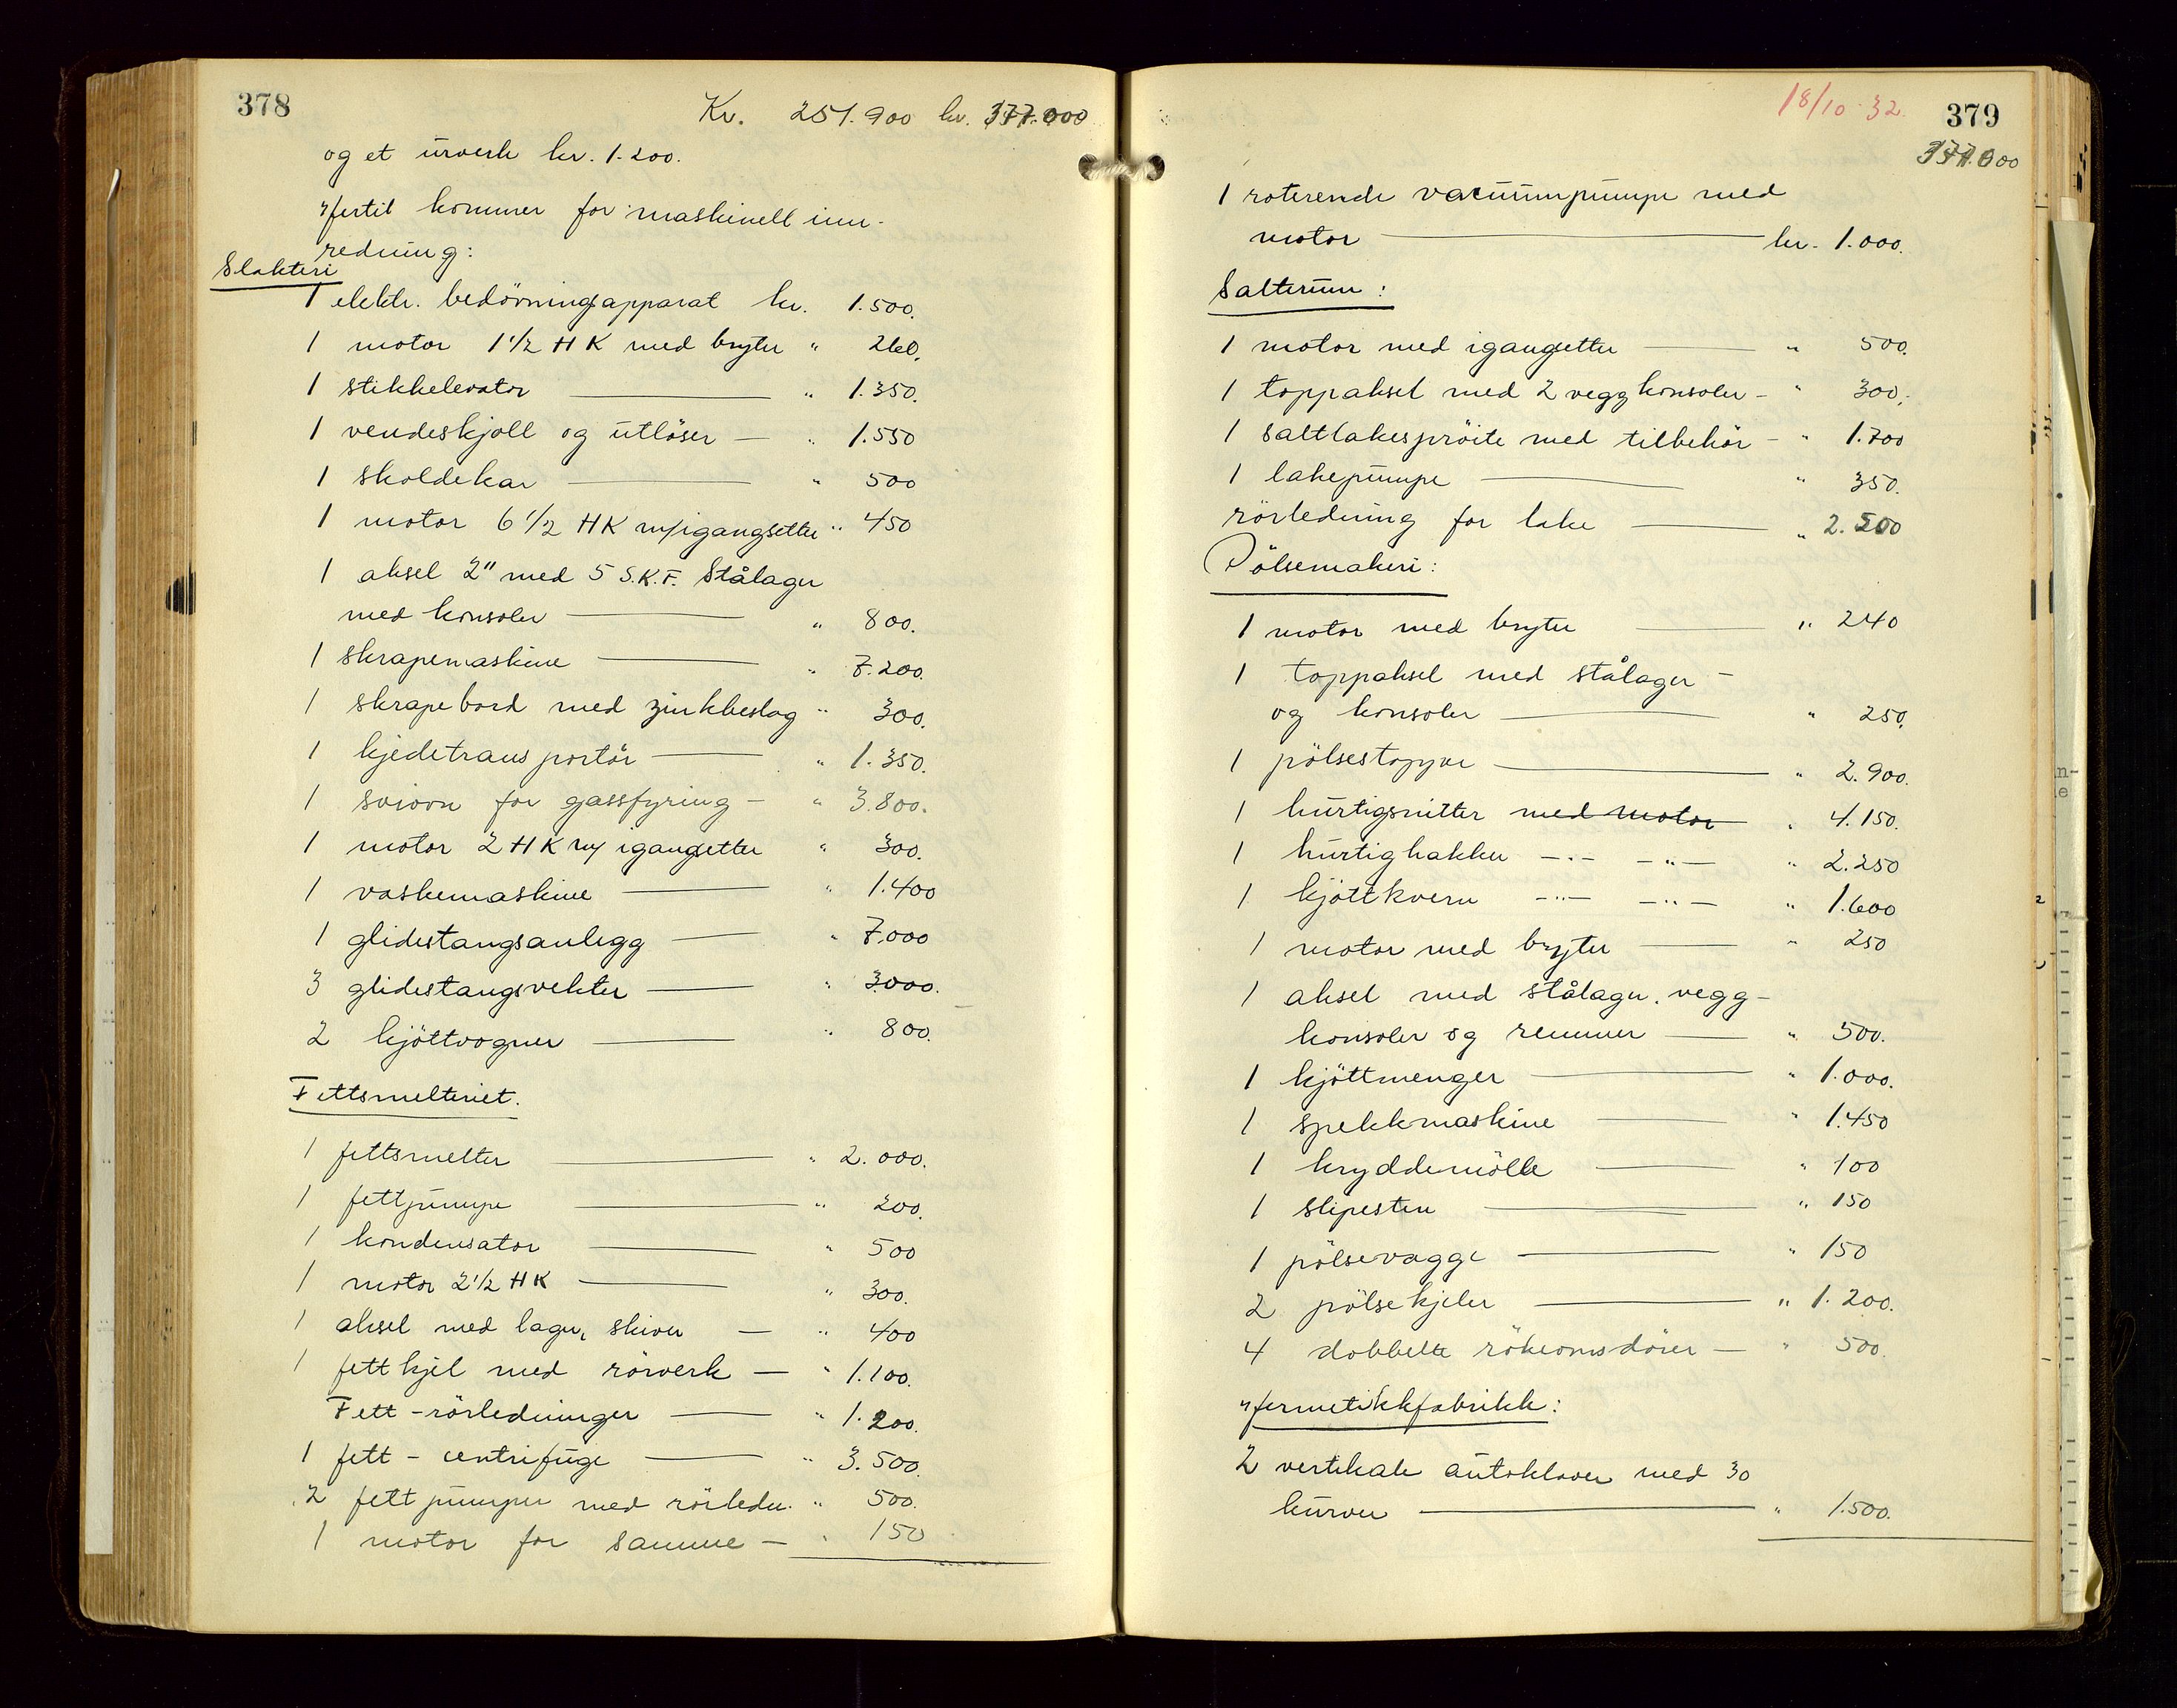 378
Kr. 251.900 kr. 377.000
og et urverk kr. 1.200.
Hertil kommer for maskinell inn-
redning:
Slakteri
1 elektr. bedövningsapparat kr. 1.500.
1 motor 1 1/2 HK med bryter " 260.
1 stikkelevator — " 1.350.
1 vendeskjoll og utlöser — " 1.550
1 skoldekar — " 500
1 motor 6 1/2 HK m/igangsetter " 450
1 aksel 2" med 5 S.K.F. Stålager
med konsoler — " 800.
1 skrapemaskine — " 7.200.
1 skrapebord med zinkbeslag " 300.
1 kjedetransportör — " 1.350.
1 sviovn for gassfyring — " 3.800.
1 motor 2 HK m/ igangsetter " 300.
1 vaskemaskine — " 1.400
1 glidestangsanlegg — " 7.000
3 glidestangsvekter — " 3000.
2 kjöttvogner — " 800.
Fettsmelteriet.
1 fettsmelter — " 2.000.
1 fettpumpe — " 200.
1 kondensator — " 500
1 motor 2 1/2 HK — " 300.
1 aksel med lager, skiver — " 400
1 fettkjel med rörverk — " 1.100.
Fett-rörledninger — " 1.200.
1 fett - centrifuge — " 3.500.
2 fettpumper med rörledn. " 500.
1 motor for samme — " 150
18/10 32.
379
377.000
1 roterende vacuumpumpe med
motor — kr. 1.000.
Salterum:
1 motor med igangsetter — " 500.
1 toppaksel med 2 veggkonsoler - " 300.
1 saltlakespröite med tilbehör - " 1.700
1 lakepumpe — " 350.
rörledning for lake — " 2.500
Pölsemakeri:
1 motor med bryter — " 240
1 toppaksel med stålager -
og konsoler — " 250.
1 pölsestopper — " 2.900.
1 hurtigsnitter med motor " 4.150.
1 hurtighakker —"— —"— " 2.250
1 kjöttkvern —"— —"— " 1.600
1 motor med bryter — " 250
1 aksel med stålager, vegg-
konsoler og remmer — " 500.
1 kjöttmenger — " 1.000.
1 spekkmaskine — " 1.450
1 kryddemölle — " 100
1 slipesten — " 150
1 pölsevagge — " 150
2 pölsekjeler — " 1.200.
4 dobbelte rökeovnsdörer — " 500.
Hermetikkfabrikk:
2 vertikale autoklaver med 30
kurver — " 1.500.